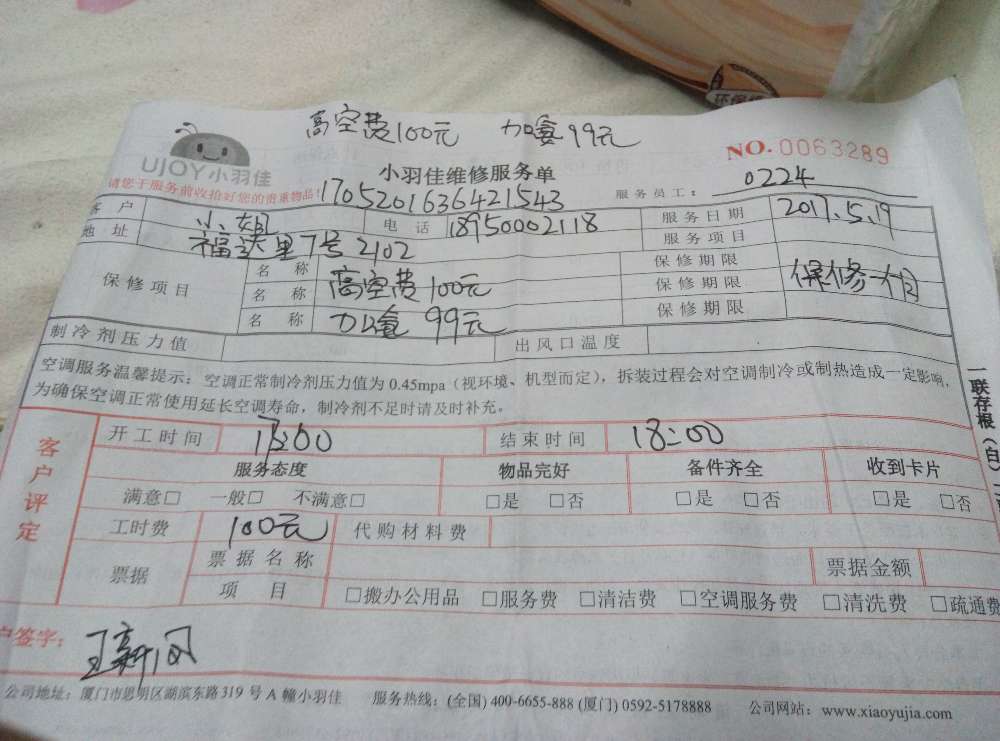 环保
高空费100元 加氟99元
UJOY 小羽佳
小羽佳维修服务单
NO. 0063289
请您于服务前收拾好您的贵重物品!
1705201636421543
服务员工: 0224
客户 小姐 电话 18950002118 服务日期 2017.5.19
地址 福达里7号2102 服务项目
保修项目 名称 保修期限
名称 高空费100元 保修期限 保修一个月
名称 加氟 99元 保修期限
制冷剂压力值 出风口温度
空调服务温馨提示:空调正常制冷剂压力值为 0.45mpa(视环境、机型而定),拆装过程会对空调制冷或制热造成一定影响,
为确保空调正常使用延长空调寿命,制冷剂不足时请及时补充。
一联存根(白)
客户评定
开工时间 17:00 结束时间 18:00
服务态度 物品完好 备件齐全 收到卡片
满意□ 一般□ 不满意□ □是 □否 □是 □否 □是 □否
工时费 100元 代购材料费
票据 票据名称 票据金额
项目 □搬办公用品 □服务费 □清洁费 □空调服务费 □清洗费 □疏通费
户签字:
公司地址:厦门市思明区湖滨东路319号A幢小羽佳 服务热线:(全国) 400-6655-888 (厦门) 0592-5178888 公司网站:www.xiaoyujia.com